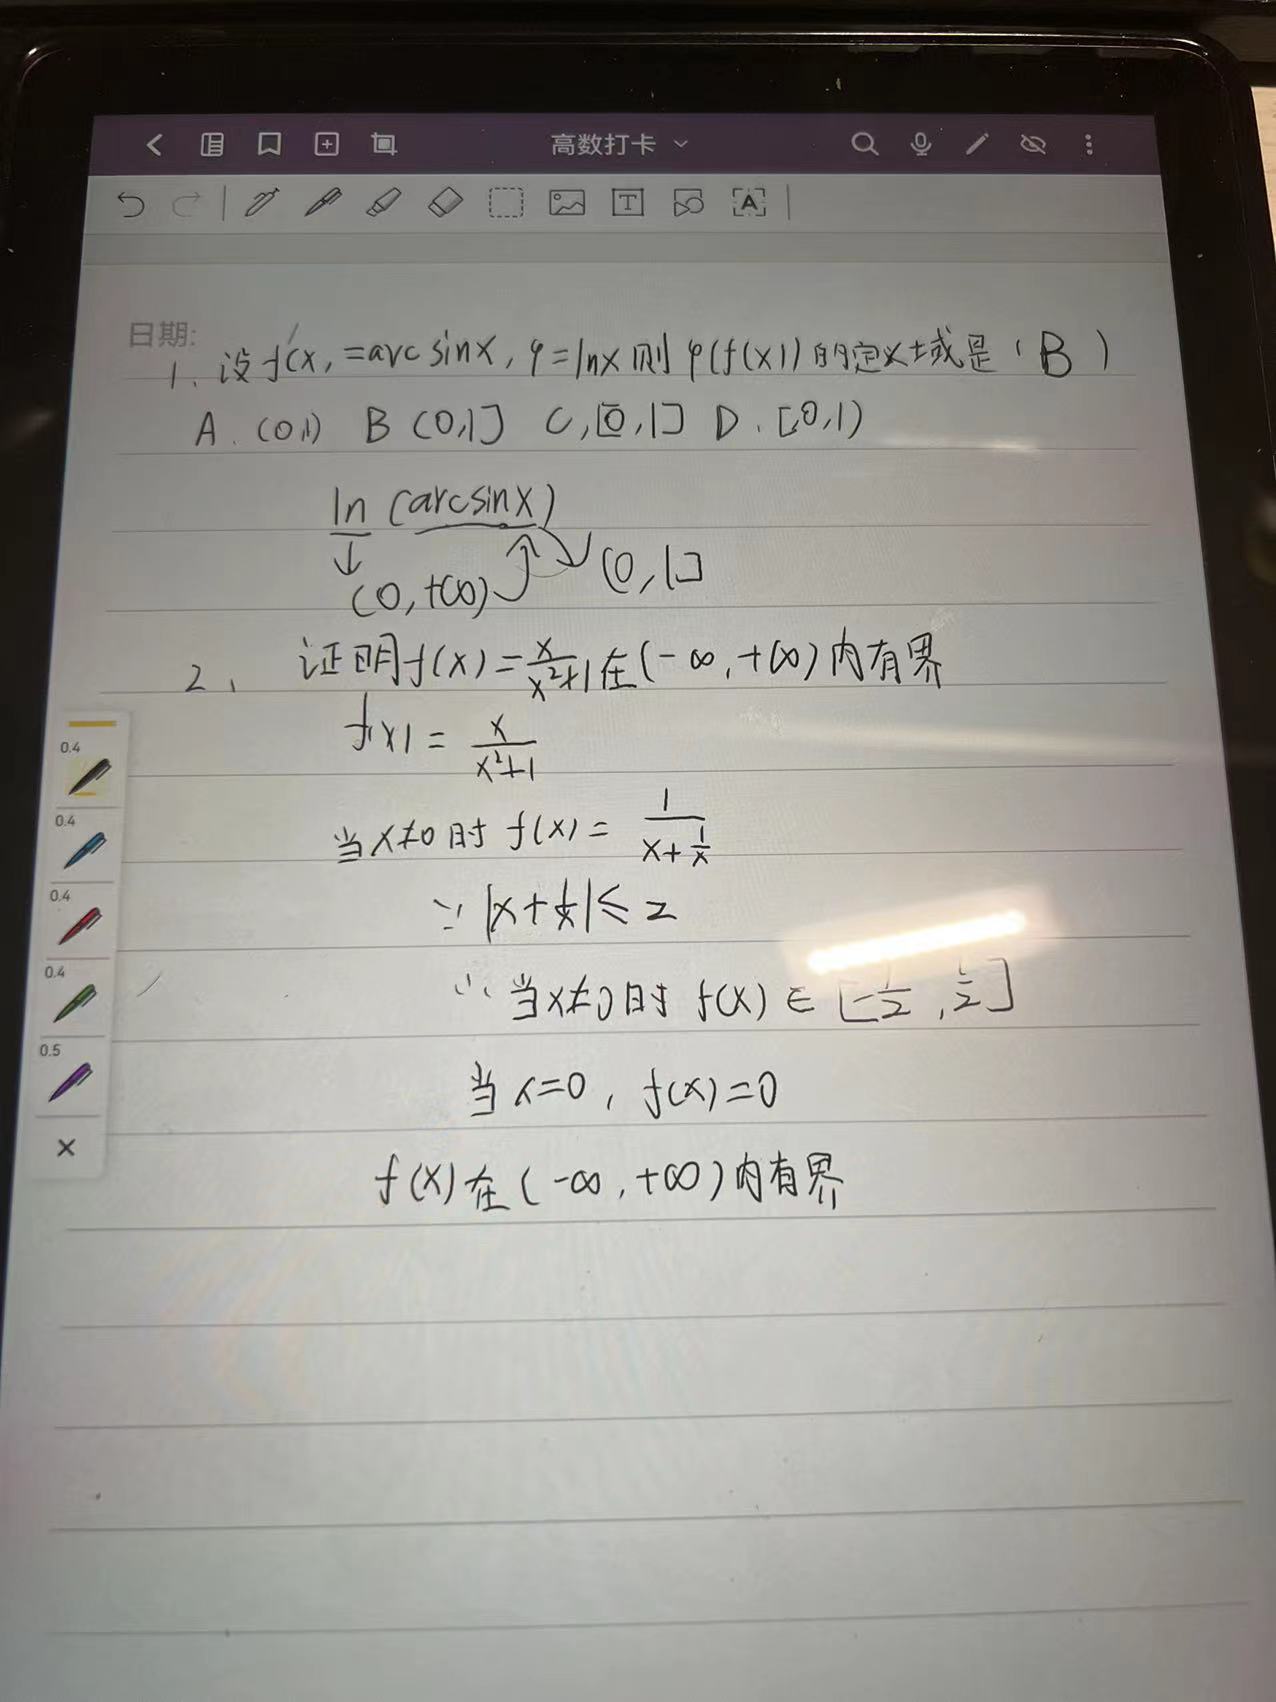 高数打卡
日期:
1. 设f(x,=arcsinx, φ=lnx则φ(f(x))的定义域是(B)
A.(0,1) B (0,1] C,[0,1] D.[0,1)
ln (arcsinx)
(0,+∞) (0,1]
2、证明f(x)=x/(x²+1)在(-∞,+∞)内有界
f(x)=x/(x²+1)
当x≠0时 f(x)=1/(x+1/x)
∵|x+1/x|≤2
∴当x≠0时 f(x)∈[-1/2,1/2]
当x=0, f(x)=0
f(x)在(-∞,+∞)内有界
0.4
0.4
0.4
0.4
0.5